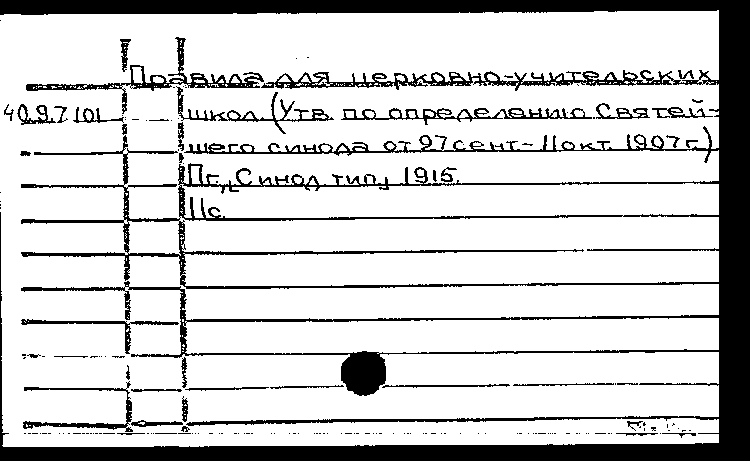 Правила для церковно-учительских
40.9.7.101 школ. (Утв. по определению Святей-
шего синода от 27 сент.- 11 окт. 1907 г.)
Пг., [Синод. тип.] 1915.
11 с.